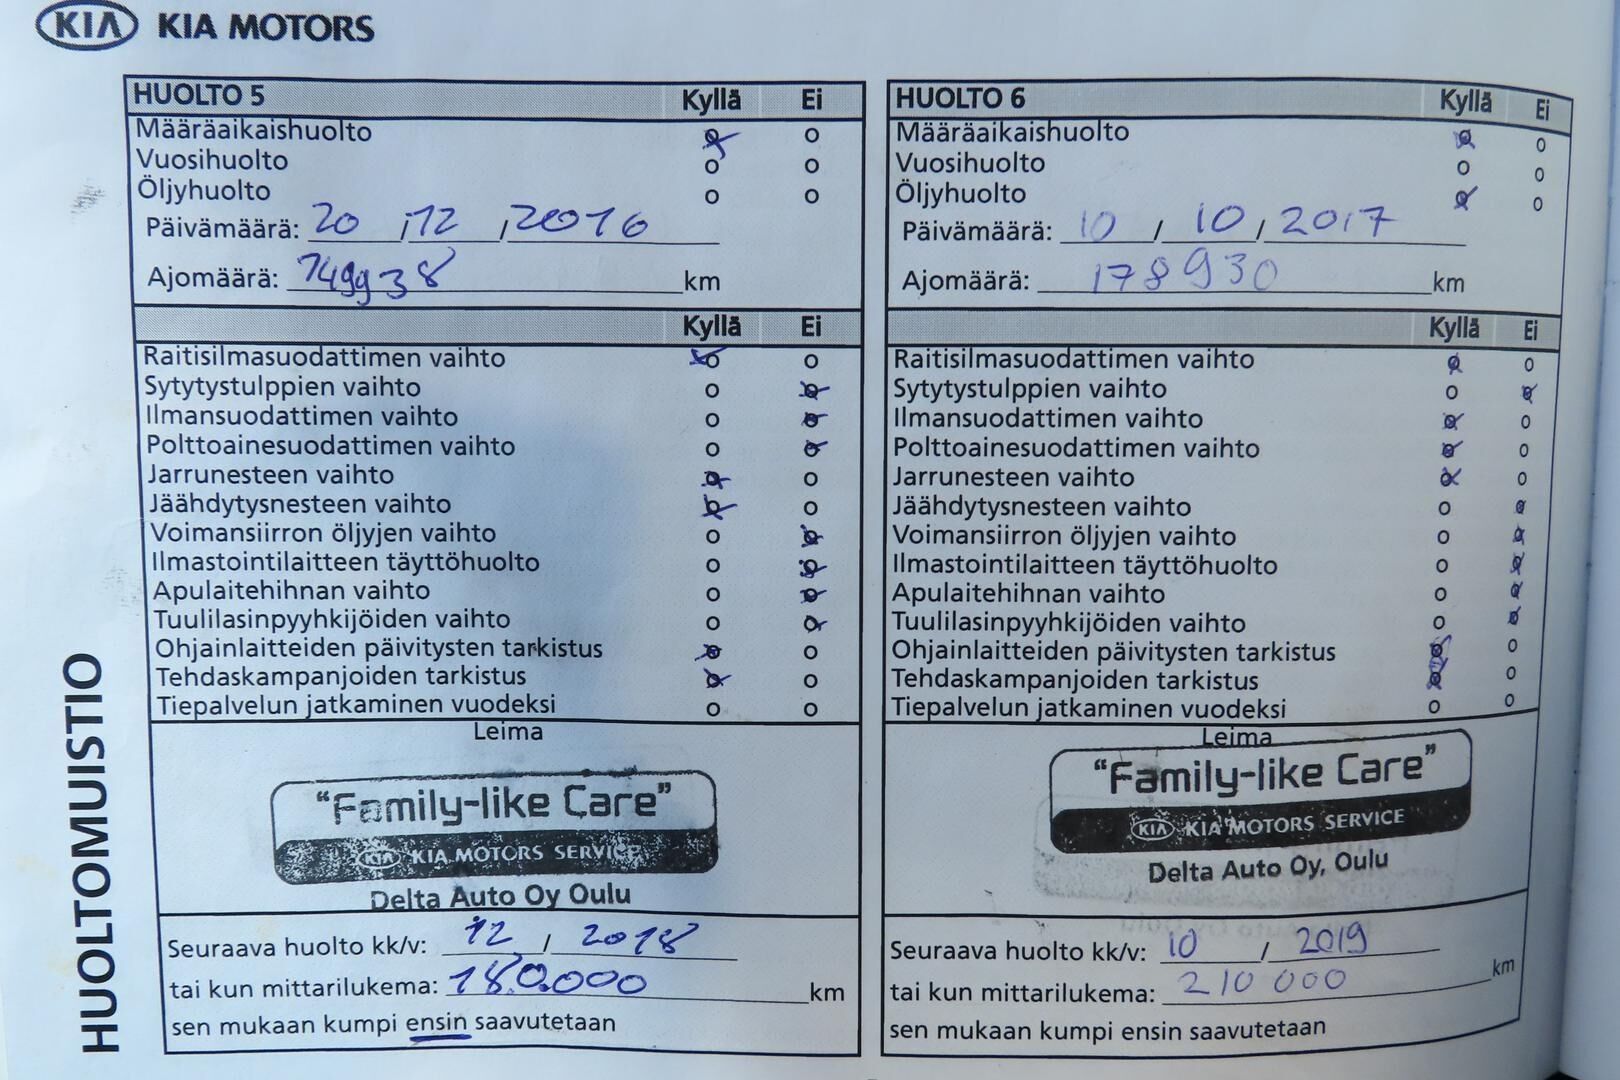 KIA KIA MOTORS
HUOLTOMUISTIO
HUOLTO 5 Kyllä Ei
Määräaikaishuolto
Vuosihuolto
Öljyhuolto
Päivämäärä: 20 / 12 / 2016
Ajomäärä: 149938 km
Kyllä Ei
Raitisilmasuodattimen vaihto
Sytytystulppien vaihto
Ilmansuodattimen vaihto
Polttoainesuodattimen vaihto
Jarrunesteen vaihto
Jäähdytysnesteen vaihto
Voimansiirron öljyjen vaihto
Ilmastointilaitteen täyttöhuolto
Apulaitehihnan vaihto
Tuulilasinpyyhkijöiden vaihto
Ohjainlaitteiden päivitysten tarkistus
Tehdaskampanjoiden tarkistus
Tiepalvelun jatkaminen vuodeksi
Leima
"Family-like Care"
KIA KIA MOTORS SERVICE
Delta Auto Oy Oulu
Seuraava huolto kk/v: 12 / 2018
tai kun mittarilukema: 180.000 km
sen mukaan kumpi ensin saavutetaan
HUOLTO 6 Kyllä Ei
Määräaikaishuolto
Vuosihuolto
Öljyhuolto
Päivämäärä: 10 / 10 / 2017
Ajomäärä: 178930 km
Kyllä Ei
Raitisilmasuodattimen vaihto
Sytytystulppien vaihto
Ilmansuodattimen vaihto
Polttoainesuodattimen vaihto
Jarrunesteen vaihto
Jäähdytysnesteen vaihto
Voimansiirron öljyjen vaihto
Ilmastointilaitteen täyttöhuolto
Apulaitehihnan vaihto
Tuulilasinpyyhkijöiden vaihto
Ohjainlaitteiden päivitysten tarkistus
Tehdaskampanjoiden tarkistus
Tiepalvelun jatkaminen vuodeksi
Leima
"Family-like Care"
KIA KIA MOTORS SERVICE
Delta Auto Oy, Oulu
Seuraava huolto kk/v: 10 / 2019
tai kun mittarilukema: 210 000 km
sen mukaan kumpi ensin saavutetaan